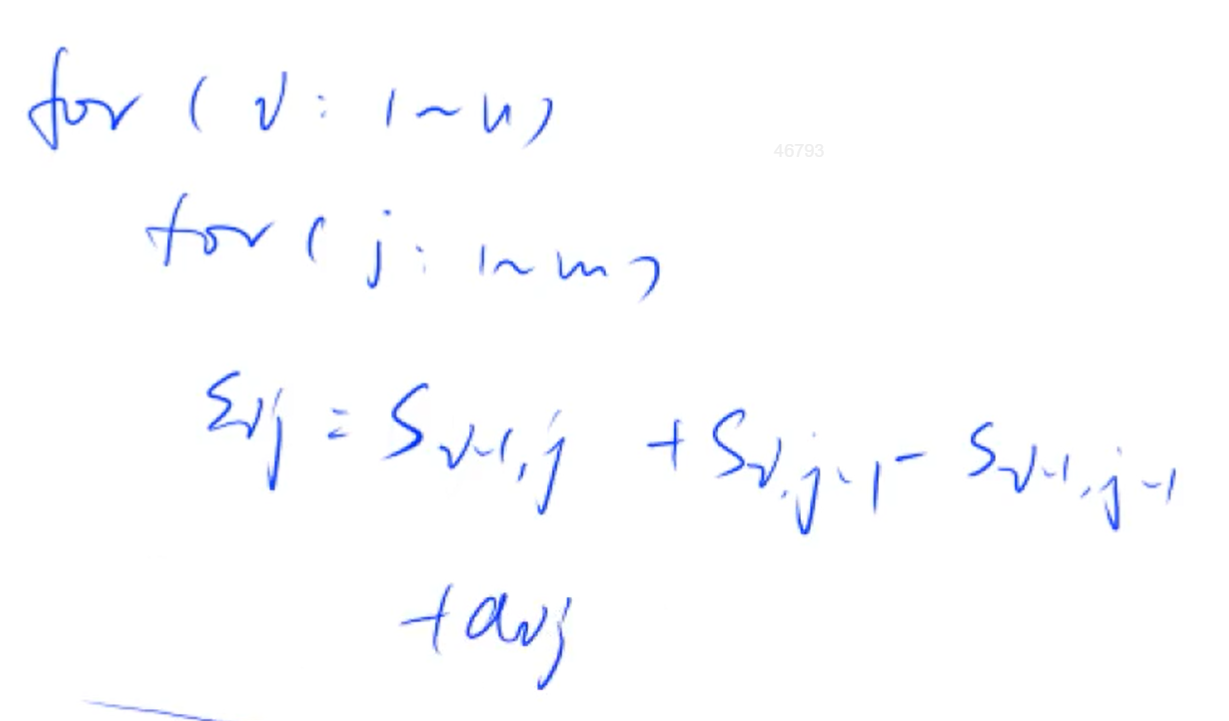 for ( i : 1 ~ n )
46793
for ( j : 1 ~ m )
Sij = Si-1,j + Si,j-1 - Si-1,j-1
+ aij